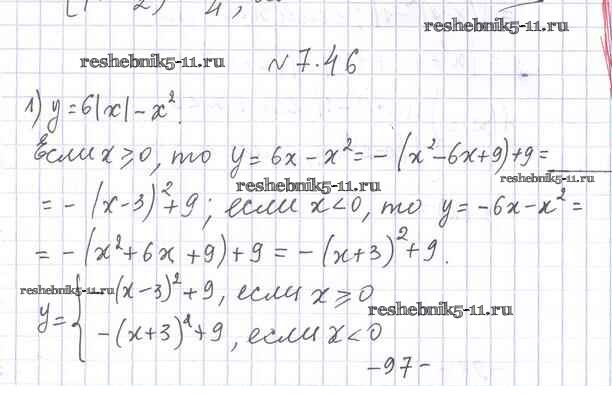 reshebnik5-11.ru
reshebnik5-11.ru
№ 7.46
1) y = 6|x| - x².
Если x ≥ 0, то y = 6x - x² = - (x² - 6x + 9) + 9 =
reshebnik5-11.ru
reshebnik5-11.ru
= - (x-3)² + 9; если x < 0, то y = -6x - x² =
= - (x² + 6x + 9) + 9 = - (x+3)² + 9.
reshebnik5-11.ru
y = { -(x-3)² + 9, если x ≥ 0
reshebnik5-11.ru
-(x+3)² + 9, если x < 0
-97-